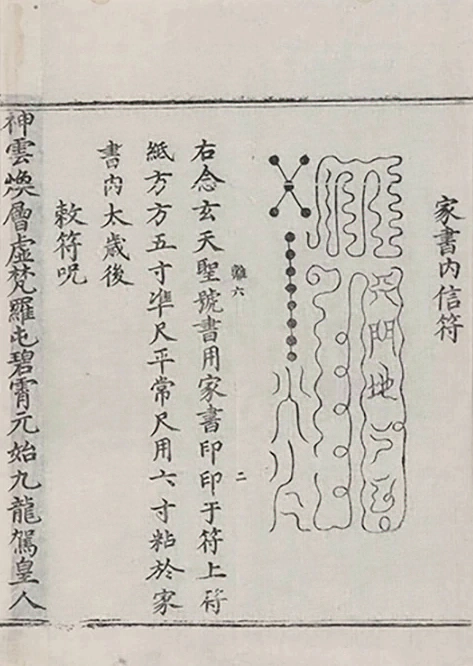 家書內信符
天門地
右念玄天聖號書用家書印印于符上符
難六
二
紙方方五寸準尺平常尺用六寸粘於家
書內太歲後
敕符呪
神雲煥層虛梵羅屯碧霄元始九龍駕皇人